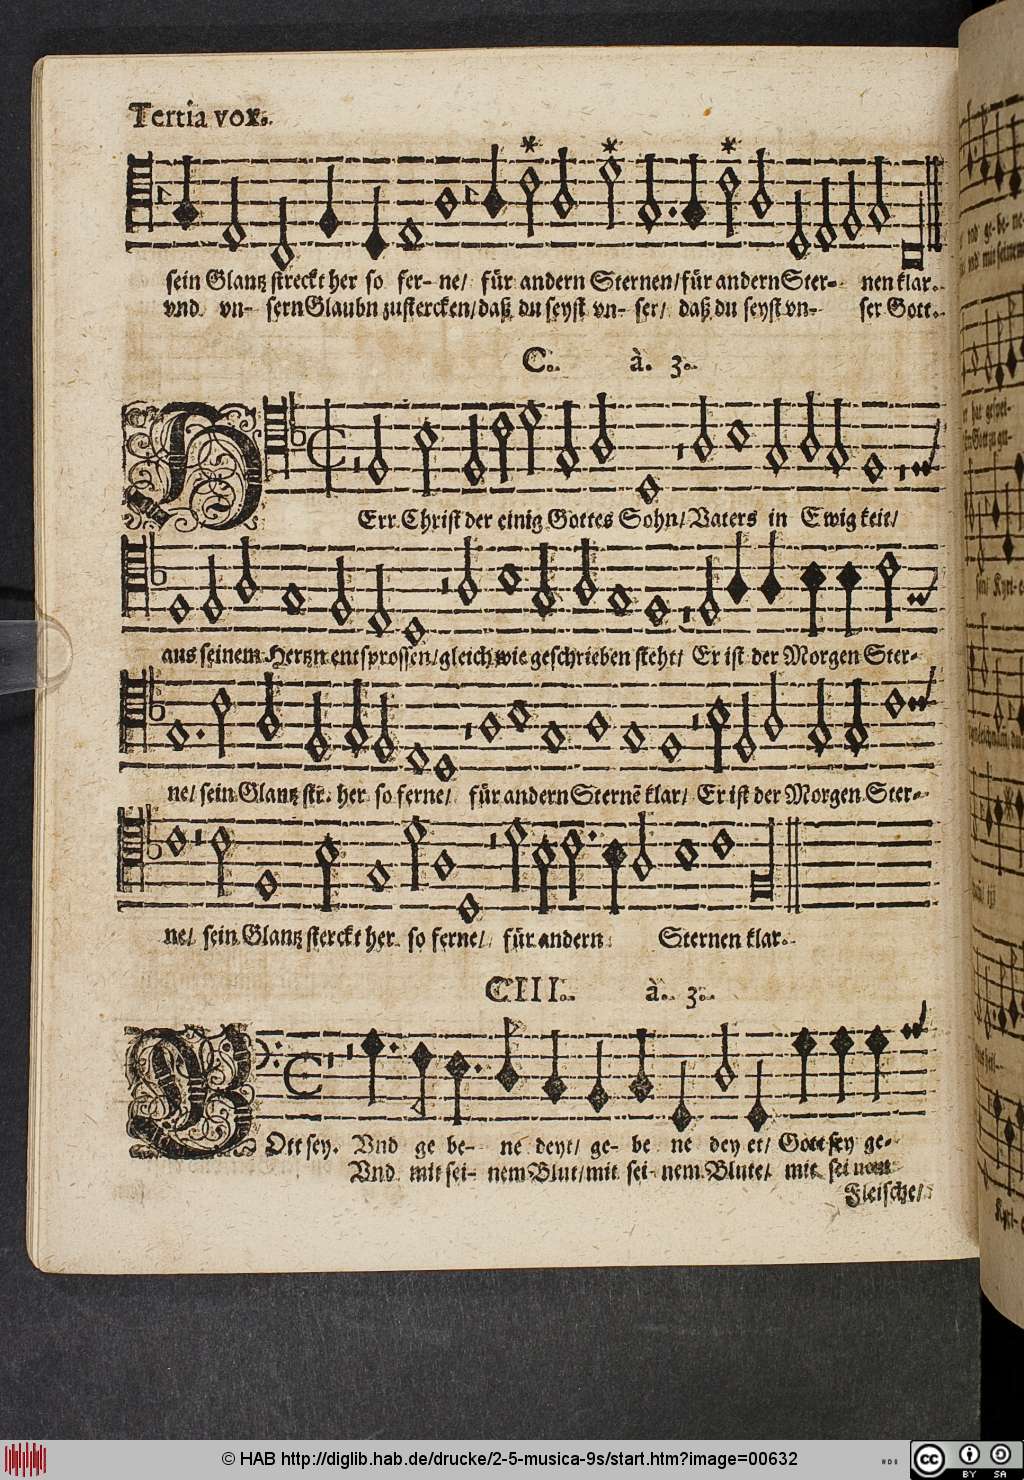 Tertia vox.
sein Glantz streckt her so fer- ne/ für andern Sternen/für andern Ster- nen klar.
vnd vn- sern Glaubn zustercken/daß du seyst vn- ser/ daß du seyst vn- ser Gott.
C. à. 3.
HErr Christ der einig Gottes Sohn/Vaters in Ewig keit/
aus seinem Hertzn entsprossen/gleich wie geschrieben steht/ Er ist der Morgen Ster-
ne/ sein Glantz str. her so ferne/ für andern Sternē klar/ Er ist der Morgen Ster-
ne/ sein Glantz sterckt her so ferne/ für andern Sternen klar.
CIII. à. 3.
GOtt sey. Vnd ge be- ne deyt/ ge- be ne dey et/ Gott sey ge-
Vnd mit sei- nem Blut/mit sei- nem Blute/ mit sei nem
Fleische/
© HAB http://diglib.hab.de/drucke/2-5-musica-9s/start.htm?image=00632
cc BY SA